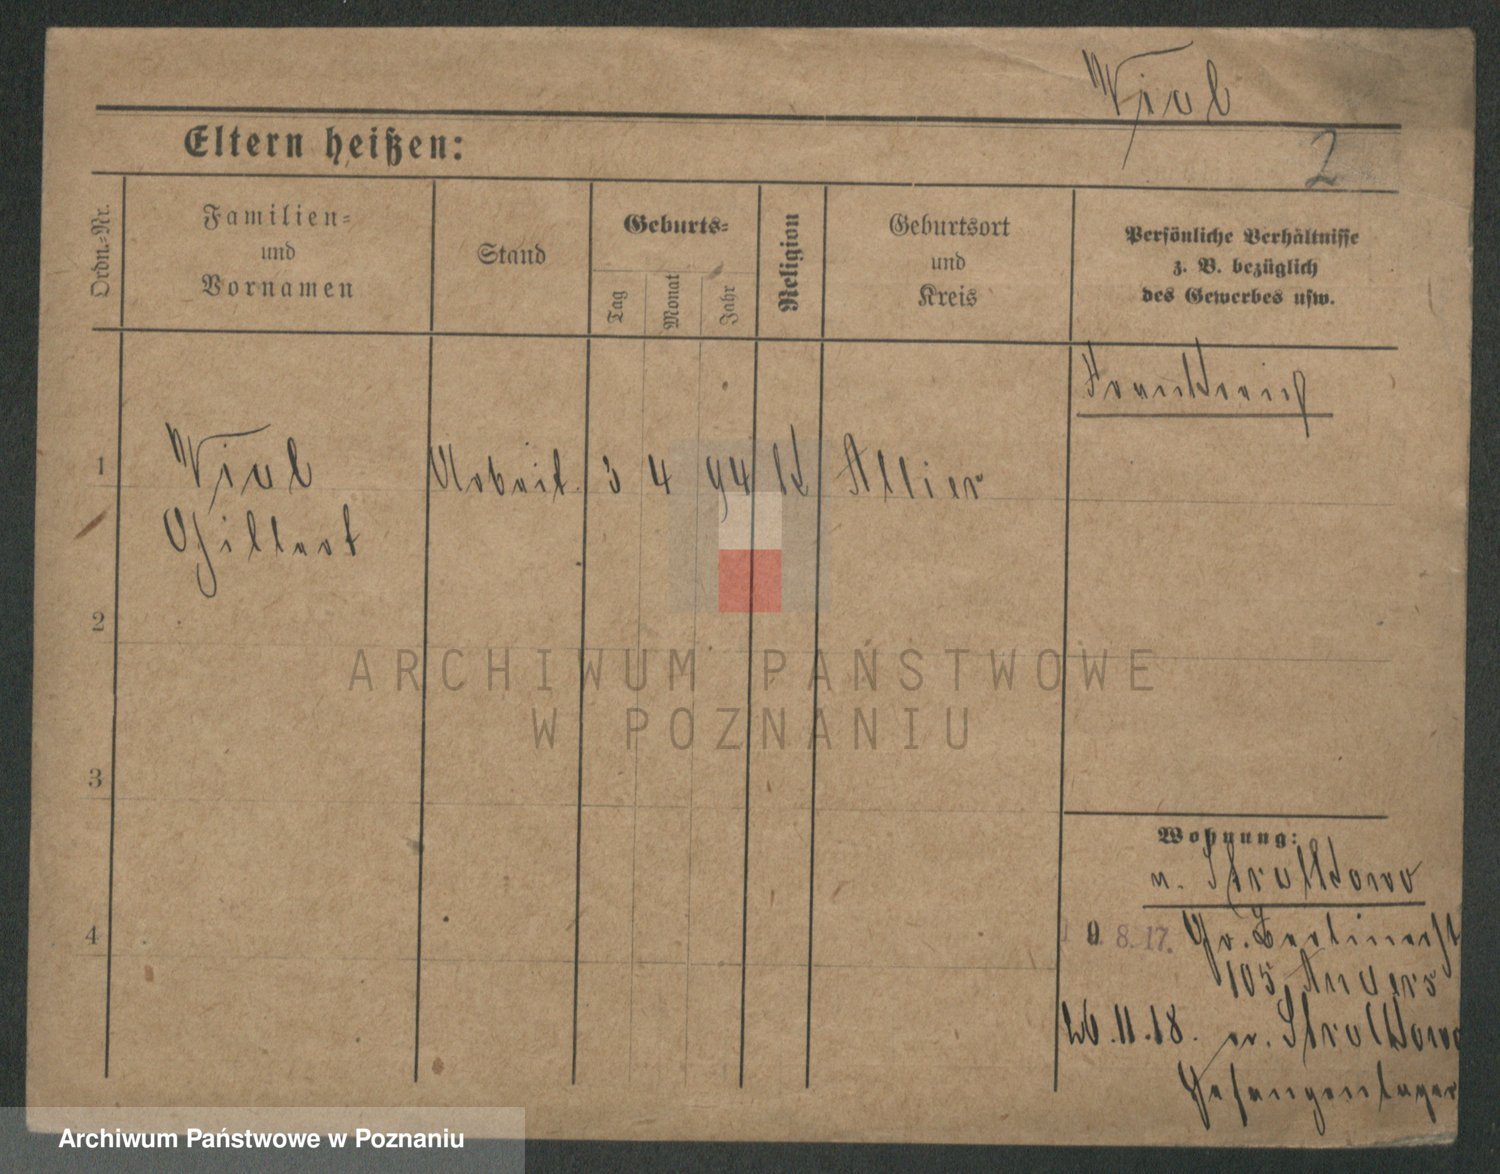 Vial
2
Eltern heißen:
Ordn.-Nr.
Familien-
und
Vornamen
Stand
Geburts-
Tag
Monat
Jahr
Religion
Geburtsort
und
Kreis
Persönliche Verhältnisse
z. B. bezüglich
des Gewerbes usw.
Frankreich
1 Vial Arbeit. 3 4 94 k Allier
Gilbert
2
ARCHIWUM PAŃSTWOWE
W POZNANIU
3
Wohnung:
n. Stralkowo
4
9. 8. 17. Gr. Berlinerst
105 Anders
26.11.18. n. Stralkowo
Gefangenlager
Archiwum Państwowe w Poznaniu